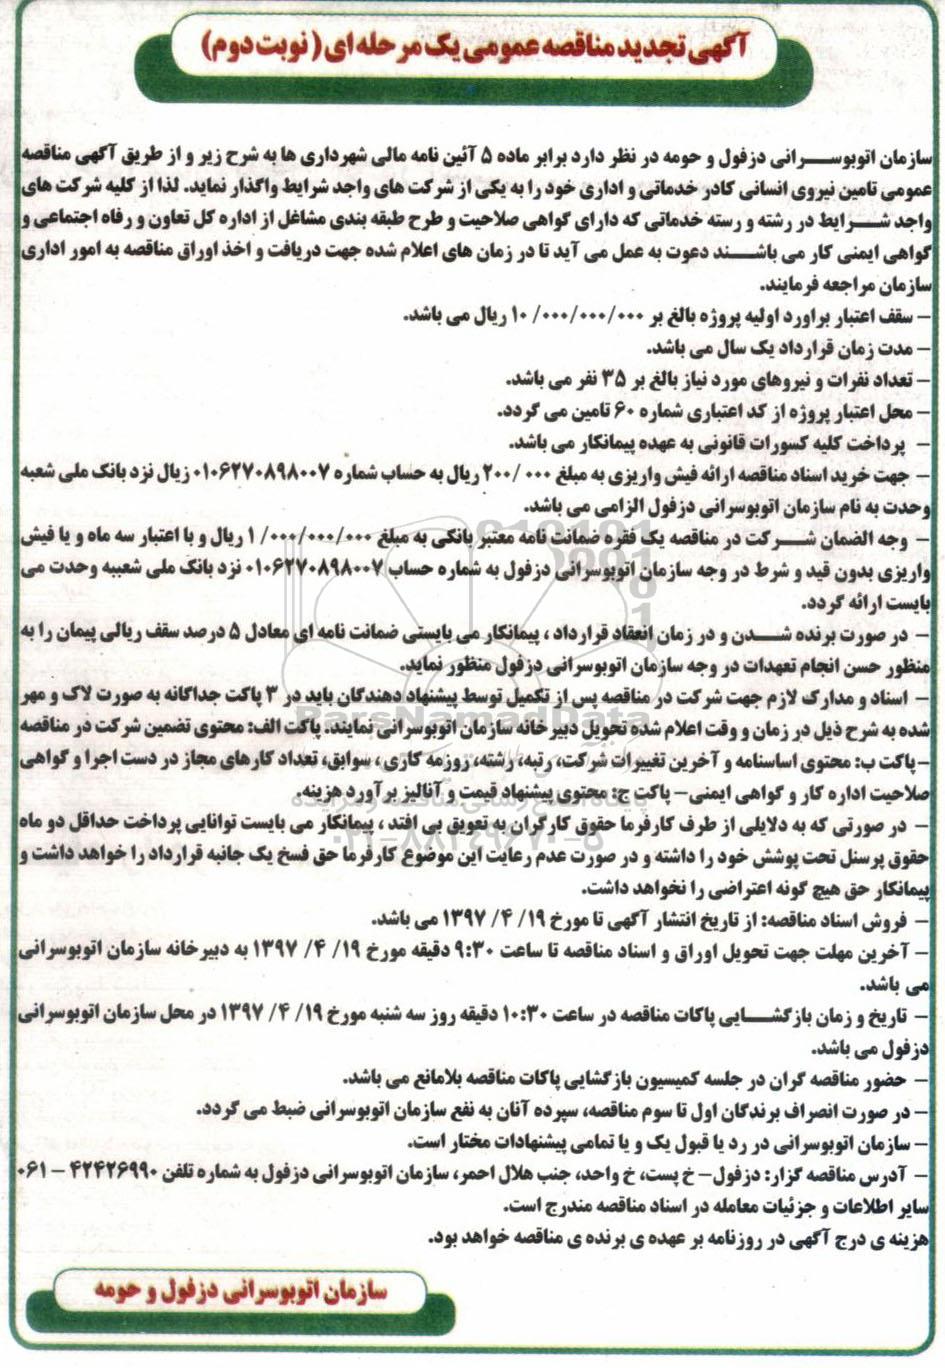 آگهی تجدید مناقصه عمومی یک مرحله ای (نوبت دوم)
سازمان اتوبوسرانی دزفول و حومه در نظر دارد برابر ماده ۵ آئین نامه مالی شهرداری ها به شرح زیر و از طریق آگهی مناقصه
عمومی تامین نیروی انسانی کادر خدماتی و اداری خود را به یکی از شرکت های واجد شرایط واگذار نماید. لذا از کلیه شرکت های
واجد شرایط در رشته و رسته خدماتی که دارای گواهی صلاحیت و طرح طبقه بندی مشاغل از اداره کل تعاون و رفاه اجتماعی و
گواهی ایمنی کار می باشند دعوت به عمل می آید تا در زمان های اعلام شده جهت دریافت و اخذ اوراق مناقصه به امور اداری
سازمان مراجعه فرمایند.
– سقف اعتبار براورد اولیه پروژه بالغ بر ۱۰/۰۰۰/۰۰۰/۰۰۰ ریال می باشد.
– مدت زمان قرارداد یک سال می باشد.
– تعداد نفرات و نیروهای مورد نیاز بالغ بر ۳۵ نفر می باشد.
– محل اعتبار پروژه از کد اعتباری شماره ۶۰ تامین می گردد.
– پرداخت کلیه کسورات قانونی به عهده پیمانکار می باشد.
– جهت خرید اسناد مناقصه ارائه فیش واریزی به مبلغ ۲۰۰/۰۰۰ ریال به حساب شماره ۰۱۰۶۲۷۰۸۹۸۰۰۷ زیال نزد بانک ملی شعبه
وحدت به نام سازمان اتوبوسرانی دزفول الزامی می باشد.
– وجه الضمان شرکت در مناقصه یک فقره ضمانت نامه معتبر بانکی به مبلغ ۱/۰۰۰/۰۰۰/۰۰۰ ریال و با اعتبار سه ماه و یا فیش
واریزی بدون قید و شرط در وجه سازمان اتوبوسرانی دزفول به شماره حساب ۰۱۰۶۲۷۰۸۹۸۰۰۷ نزد بانک ملی شعبه وحدت می
بایست ارائه گردد.
– در صورت برنده شدن و در زمان انعقاد قرارداد ، پیمانکار می بایستی ضمانت نامه ای معادل ۵ درصد سقف ریالی پیمان را به
منظور حسن انجام تعهدات در وجه سازمان اتوبوسرانی دزفول منظور نماید.
– اسناد و مدارک لازم جهت شرکت در مناقصه پس از تکمیل توسط پیشنهاد دهندگان باید در ۳ پاکت جداگانه به صورت لاک و مهر
شده به شرح ذیل در زمان و وقت اعلام شده تحویل دبیرخانه سازمان اتوبوسرانی نمایند. پاکت الف: محتوی تضمین شرکت در مناقصه
– پاکت ب: محتوی اساسنامه و آخرین تغییرات شرکت، رتبه، رشته، روزمه کاری ، سوابق، تعداد کارهای مجاز در دست اجرا و گواهی
صلاحیت اداره کار و گواهی ایمنی– پاکت ج: محتوی پیشنهاد قیمت و آنالیز برآورد هزینه.
– در صورتی که به دلایلی از طرف کارفرما حقوق کارگران به تعویق بی افتد ، پیمانکار می بایست توانایی پرداخت حداقل دو ماه
حقوق پرسنل تحت پوشش خود را داشته و در صورت عدم رعایت این موضوع کارفرما حق فسخ یک جانبه قرارداد را خواهد داشت و
پیمانکار حق هیچ گونه اعتراضی را نخواهد داشت.
– فروش اسناد مناقصه: از تاریخ انتشار آگهی تا مورخ ۱۹/ ۴/ ۱۳۹۷ می باشد.
– آخرین مهلت جهت تحویل اوراق و اسناد مناقصه تا ساعت ۹:۳۰ دقیقه مورخ ۱۹/ ۴/ ۱۳۹۷ به دبیرخانه سازمان اتوبوسرانی
می باشد.
– تاریخ و زمان بازگشایی پاکات مناقصه در ساعت ۱۰:۳۰ دقیقه روز سه شنبه مورخ ۱۹/ ۴/ ۱۳۹۷ در محل سازمان اتوبوسرانی
دزفول می باشد.
– حضور مناقصه گران در جلسه کمیسیون بازگشایی پاکات مناقصه بلامانع می باشد.
– در صورت انصراف برندگان اول تا سوم مناقصه، سپرده آنان به نفع سازمان اتوبوسرانی ضبط می گردد.
– سازمان اتوبوسرانی در رد یا قبول یک و یا تمامی پیشنهادات مختار است.
– آدرس مناقصه گزار: دزفول– خ پست، خ واحد، جنب هلال احمر، سازمان اتوبوسرانی دزفول به شماره تلفن ۴۲۴۲۶۹۹۰ – ۰۶۱
سایر اطلاعات و جزئیات معامله در اسناد مناقصه مندرج است.
هزینه ی درج آگهی در روزنامه بر عهده ی برنده ی مناقصه خواهد بود.
سازمان اتوبوسرانی دزفول و حومه
ParsNamadData
۰۲۱-۸۸۳۴۹۶۷۰-۵